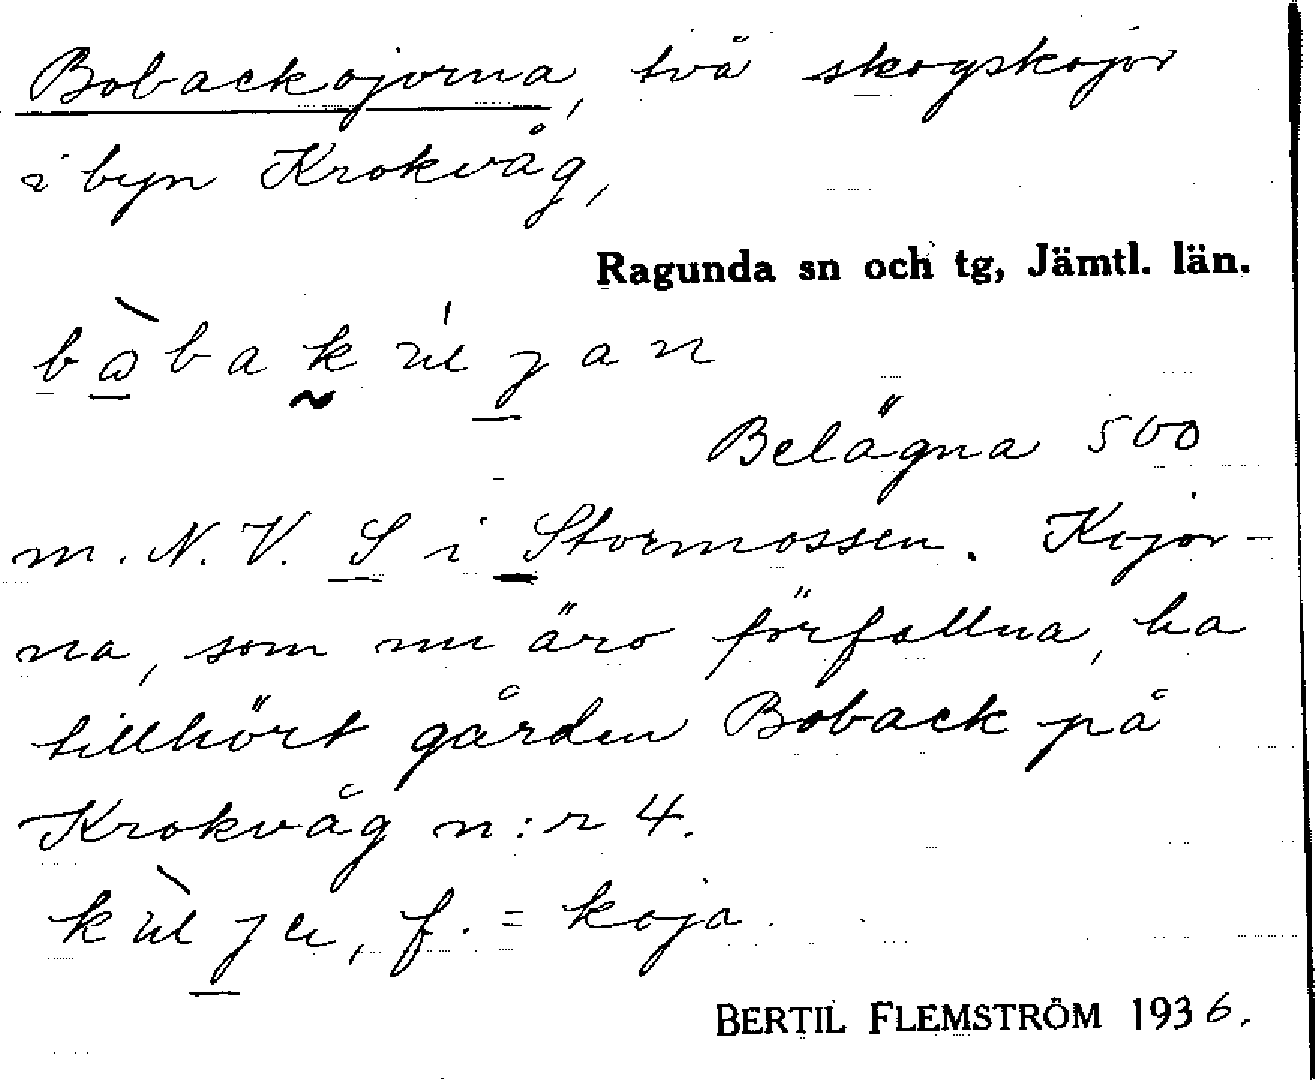 Bobackojorna, två skogskojor
i byn Krokvåg,
Ragunda sn och tg, Jämtl. län.
Belägna 500
m. N. V. S i Stormossen. Kojor-
na, som nu äro förfallna, ha
tillhört gården Boback på
Krokvåg n:r 4.
f. = koja.
BERTIL FLEMSTRÖM 1936.